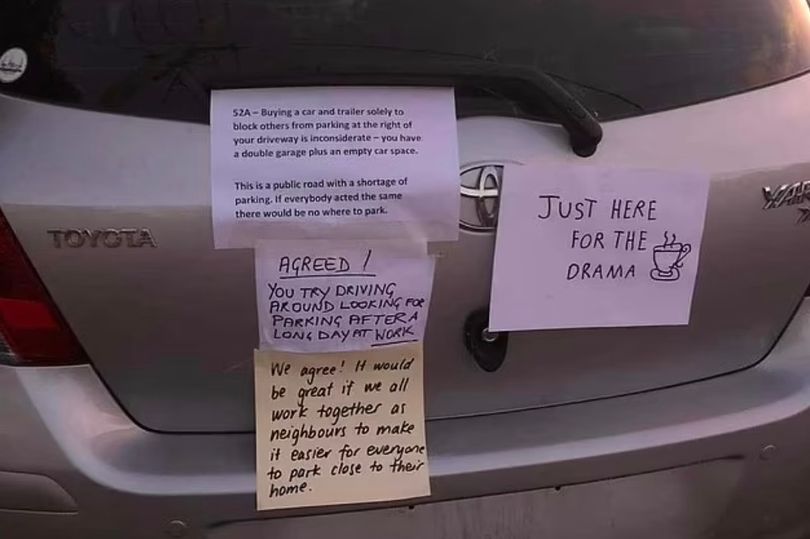 52A – Buying a car and trailer solely to
block others from parking at the right of
your driveway is inconsiderate – you have
a double garage plus an empty car space.
This is a public road with a shortage of
parking. If everybody acted the same
there would be no where to park.
AGREED!
YOU TRY DRIVING
AROUND LOOKING FOR
PARKING AFTER A
LONG DAY AT WORK
We agree! It would
be great if we all
work together as
neighbours to make
it easier for everyone
to park close to their
home.
JUST HERE
FOR THE
DRAMA
TOYOTA